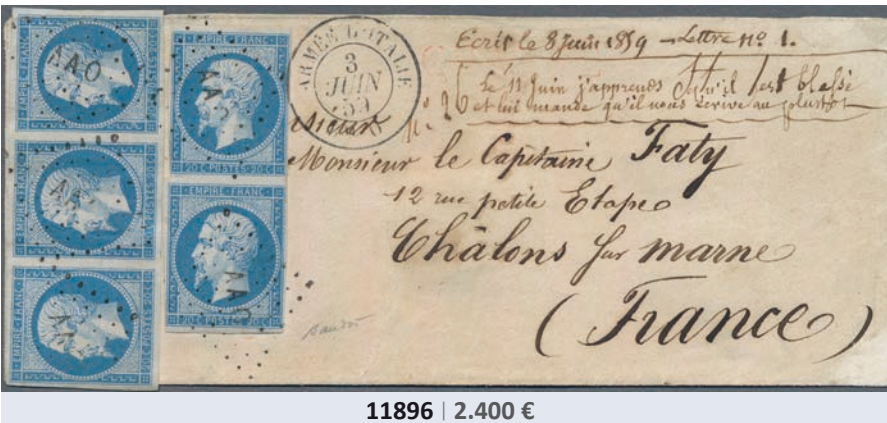 EMPIRE FRANC
EMPIRE FRANC
20 C. POSTES 20 C.
EMPIRE FRANC
20 C. POSTES 20 C.
EMPIRE FRANC
20 C. POSTES 20 C.
EMPIRE FRANC
20 C. POSTES 20 C.
AAO
AA
AA
AAO
AAO
ARMÉE D'ITALIE
3
JUIN
59
Ecrit le 8 juin 1859 - Lettre nº 1.
Le 11 juin j'apprends qu'il est blessé
et lui mande qu'il nous écrive au plustot
nº 26
Monsieur
Monsieur le Capitaine Faty
12 rue petite Etape
Châlons sur marne
(France)
11896 | 2.400 €